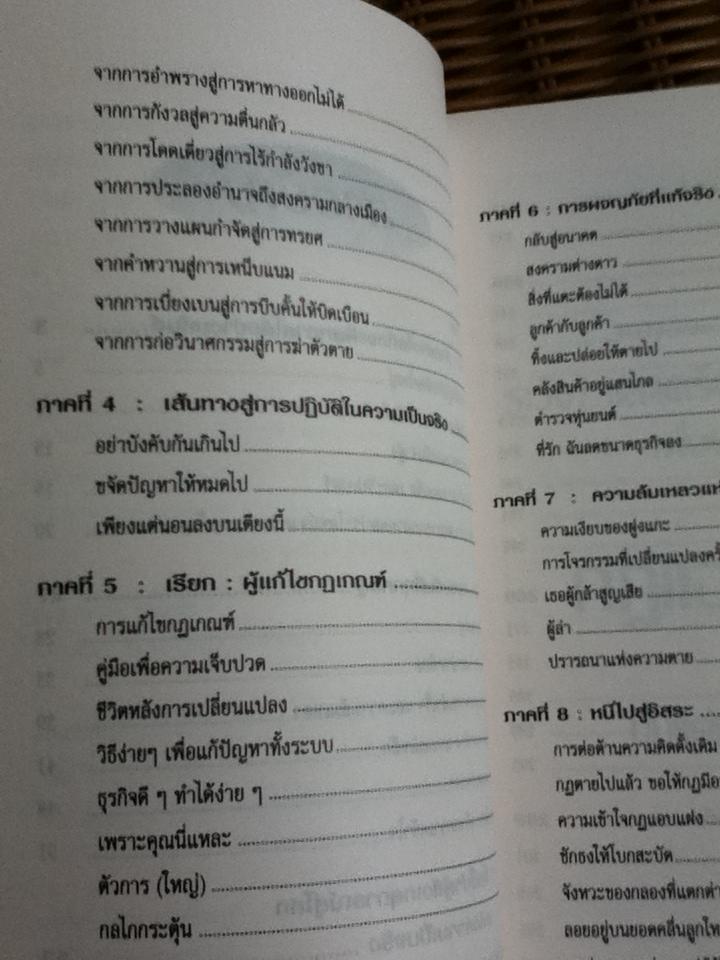 จากการอำพรางสู่การหาทางออกไม่ได้
จากการกังวลสู่ความตื่นกลัว
จากการโดดเดี่ยวสู่การไร้กำลังวังชา
จากการประลองอำนาจถึงสงครามกลางเมือง
จากการวางแผนกำจัดสู่การทรยศ
จากคำหวานสู่การเหน็บแนม
จากการเบี่ยงเบนสู่การบีบคั้นให้บิดเบือน
จากการก่อวินาศกรรมสู่การฆ่าตัวตาย
ภาคที่ 4 : เส้นทางสู่การปฏิบัติในความเป็นจริง
อย่าบังคับกันเกินไป
ขจัดปัญหาให้หมดไป
เพียงแค่นอนลงบนเตียงนี้
ภาคที่ 5 : เรียก : ผู้แก้ไขกฎเกณฑ์
การแก้ไขกฎเกณฑ์
คู่มือเพื่อความเจ็บปวด
ชีวิตหลังการเปลี่ยนแปลง
วิธีง่ายๆ เพื่อแก้ปัญหาทั้งระบบ
ธุรกิจดี ๆ ทำได้ง่าย ๆ
เพราะคุณนี่แหละ
ตัวการ (ใหญ่)
กลไกกระตุ้น
ภาคที่ 6 : การผจญภัยที่แท้จริง
กลับสู่อนาคต
สงครามต่างดาว
สิ่งที่แตะต้องไม่ได้
ลูกค้ากับลูกค้า
ทิ้งและปล่อยให้ตายไป
คลังสินค้าอยู่แสนไกล
ตำรวจหุ่นยนต์
ที่รัก ฉันลดขนาดธุรกิจลง
ภาคที่ 7 : ความล้มเหลวแห่
ความเงียบของฝูงแกะ
การโจรกรรมที่เปลี่ยนแปลงครั้
เธอผู้กล้าสูญเสีย
ผู้ล่า
ปรารถนาแห่งความตาย
ภาคที่ 8 : หนีไปสู่อิสระ
การต่อต้านความคิดดั้งเดิม
กฎตายไปแล้ว ขอให้กฎมีอา
ความเข้าใจกฎแอบแฝง
ชักธงให้โบกสะบัด
จังหวะของกลองที่แตกต่า
ลอยอยู่บนยอดคลื่นลูกให